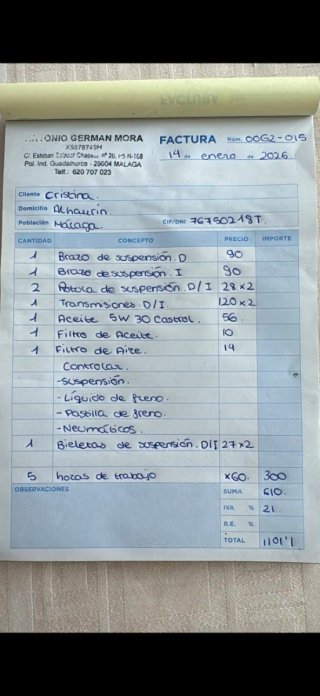 ANTONIO GERMAN MORA
X5878749H
C/ Esteban Salazar Chapela nº 20, N-168
Pol. Ind. Guadalhorce - 29004 MALAGA
Telf.: 620 707 023
FACTURA Núm. 0062-015
14 de enero de 2026
Cliente Cristina.
Domicilio Alhaurín.
Población Málaga CIF/DNI 76750218T.
CANTIDAD CONCEPTO PRECIO IMPORTE
1 Brazo de suspensión. D 90
1 Brazo de suspensión. I 90
2 Rotula de suspensión. D/I 28x2
1 Transmisiones. D/I. 120x2
1 Aceite 5W 30 Castrol. 56.
1 Filtro de Aceite. 10
1 Filtro de Aire. 14
Controlar.
-suspensión.
-Líquido de freno.
-Pastilla de freno.
-Neumáticos.
1 Bieletas de suspensión. D/I 27x2
5 horas de trabajo x60. 300
OBSERVACIONES
SUMA 610.
IVA % 21.
R.E. %
TOTAL 1101'1